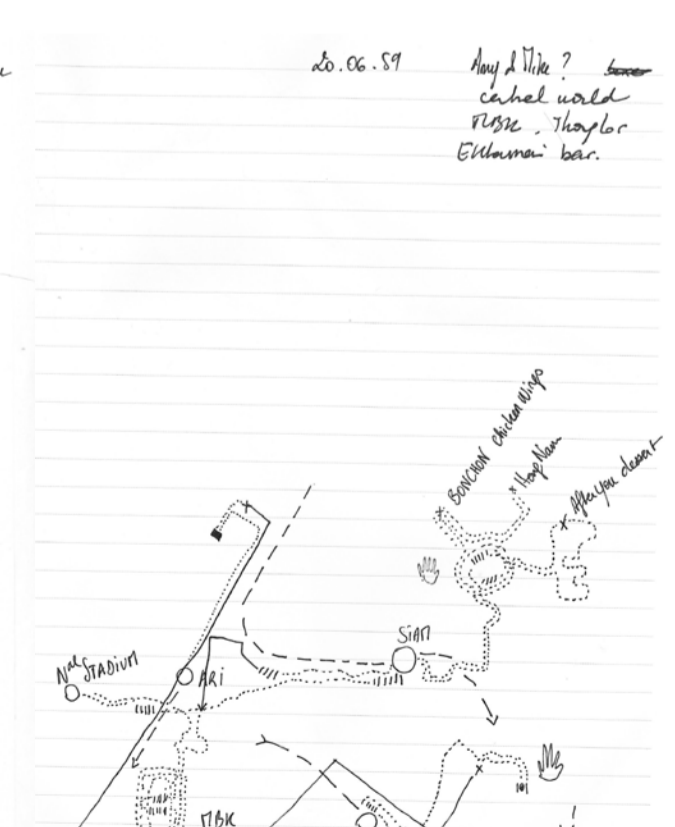 20.06.59
Amy & Mike?
central world
MBK, Thonglor
Ekkamai bar.
BONCHON chicken wings
Hong Nam
After you dessert
SIAM
Nal STADIUM
ARI
MBK